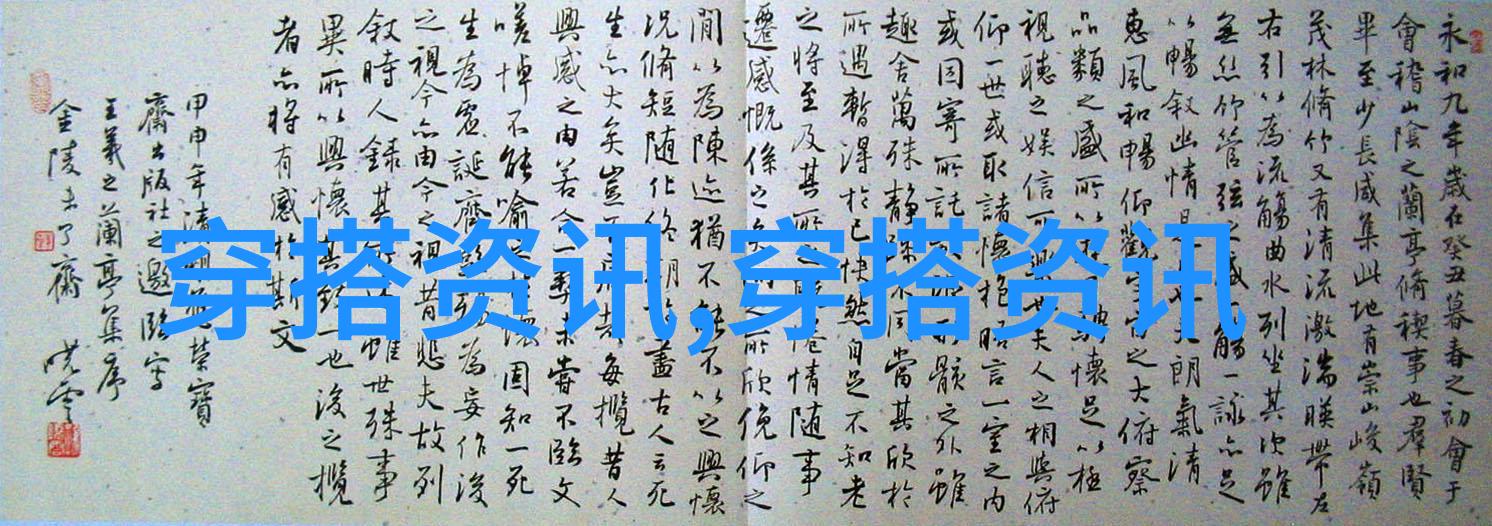 永和九年歲在癸丑暮春之初會于
會稽山陰之蘭亭脩稧事也羣賢
畢至少長咸集此地有崇山峻嶺
茂林脩竹又有清流激湍暎帶左
右引以為流觴曲水列坐其次雖
無絲竹管弦之盛一觴一詠亦足
以暢敘幽情是日也天朗氣清
惠風和暢仰觀宇宙之大俯察
品類之盛所以騁懷足以極
視聽之娛信可樂也夫人之相與俯
仰一世或取諸懷抱晤言一室之內
或因寄所託形骸之外雖
趣舍萬殊靜躁不同當其欣於
所遇暫得於己快然自足不知老
之將至及其所之倦情隨事
遷感慨係之矣之所欣俛仰之
閒以為陳迹猶不能不以之興懷
況脩短隨化終期於盡古人云死
生亦大矣豈不痛哉每攬昔人
興感之由若合一契未嘗不臨文
嗟悼不能喻之懷固知一死
生為虛誕齊彭殤為妄作後
之視今亦由今之視昔悲夫故列
敘時人錄其所述雖世殊事
異所以興懷其致一也後之攬
者亦將有感於斯文
甲申年清明應榮寶
齋出版社之邀臨寫
王羲之蘭亭集序
金陵未了齋 曉雲
穿搭资讯,穿搭资讯